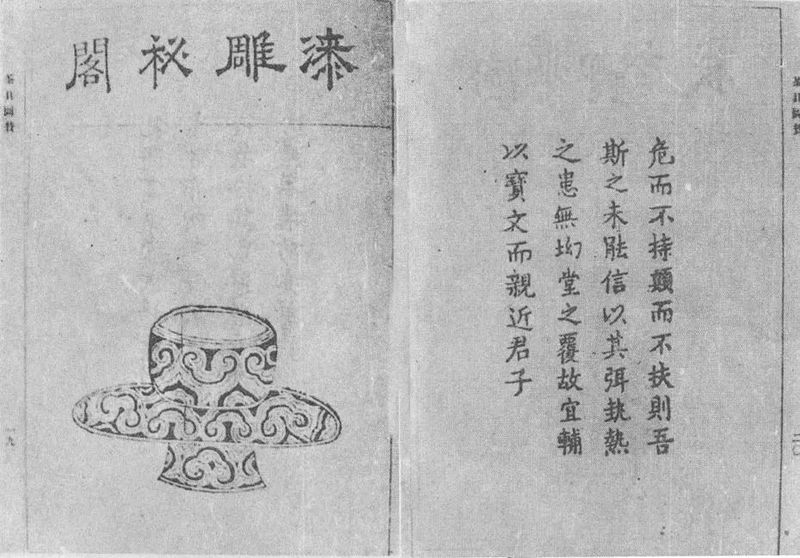 漆雕祕閣
茶具圖贊
一九
危而不持顛而不扶則吾
斯之未能信以其弭執熱
之患無坳堂之覆故宜輔
以寶文而親近君子
茶具圖贊
二〇